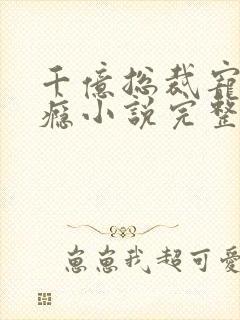 千億總裁寵
癮小說完整
崽崽我超可愛